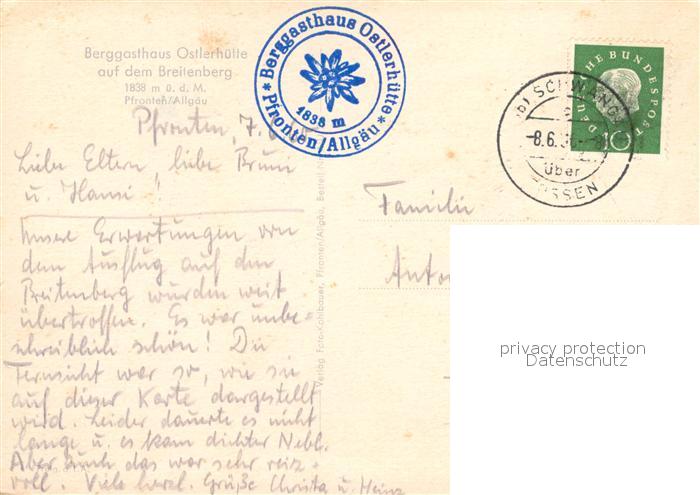 Berggasthaus Ostlerhütte
auf dem Breitenberg
1838 m ü. d. M.
Pfronten/Allgäu
* Berggasthaus Ostlerhütte *
1838 m
Pfronten/Allgäu
DEUTSCHE BUNDESPOST
10
SCHWANG
-8.6.
über
FÜSSEN
Pfronten, 7.6.
Liebe Eltern, liebe
u. Hansi!
Unsere Erwartungen von
dem Ausflug auf den
Breitenberg wurden weit
übertroffen. Es war unbe-
schreiblich schön! Die
Fernsicht war so, wie sie
auf dieser Karte dargestellt
wird. Leider dauerte es nicht
lange u. es kam dichter Nebl.
Aber auch das war sehr reiz-
voll. Viele herzl. Grüße Christa u. Heinz
Verlag Foto-Kohlbauer, Pfronten/Allgäu, Bestell
Familie
Anto
privacy protection
Datenschutz